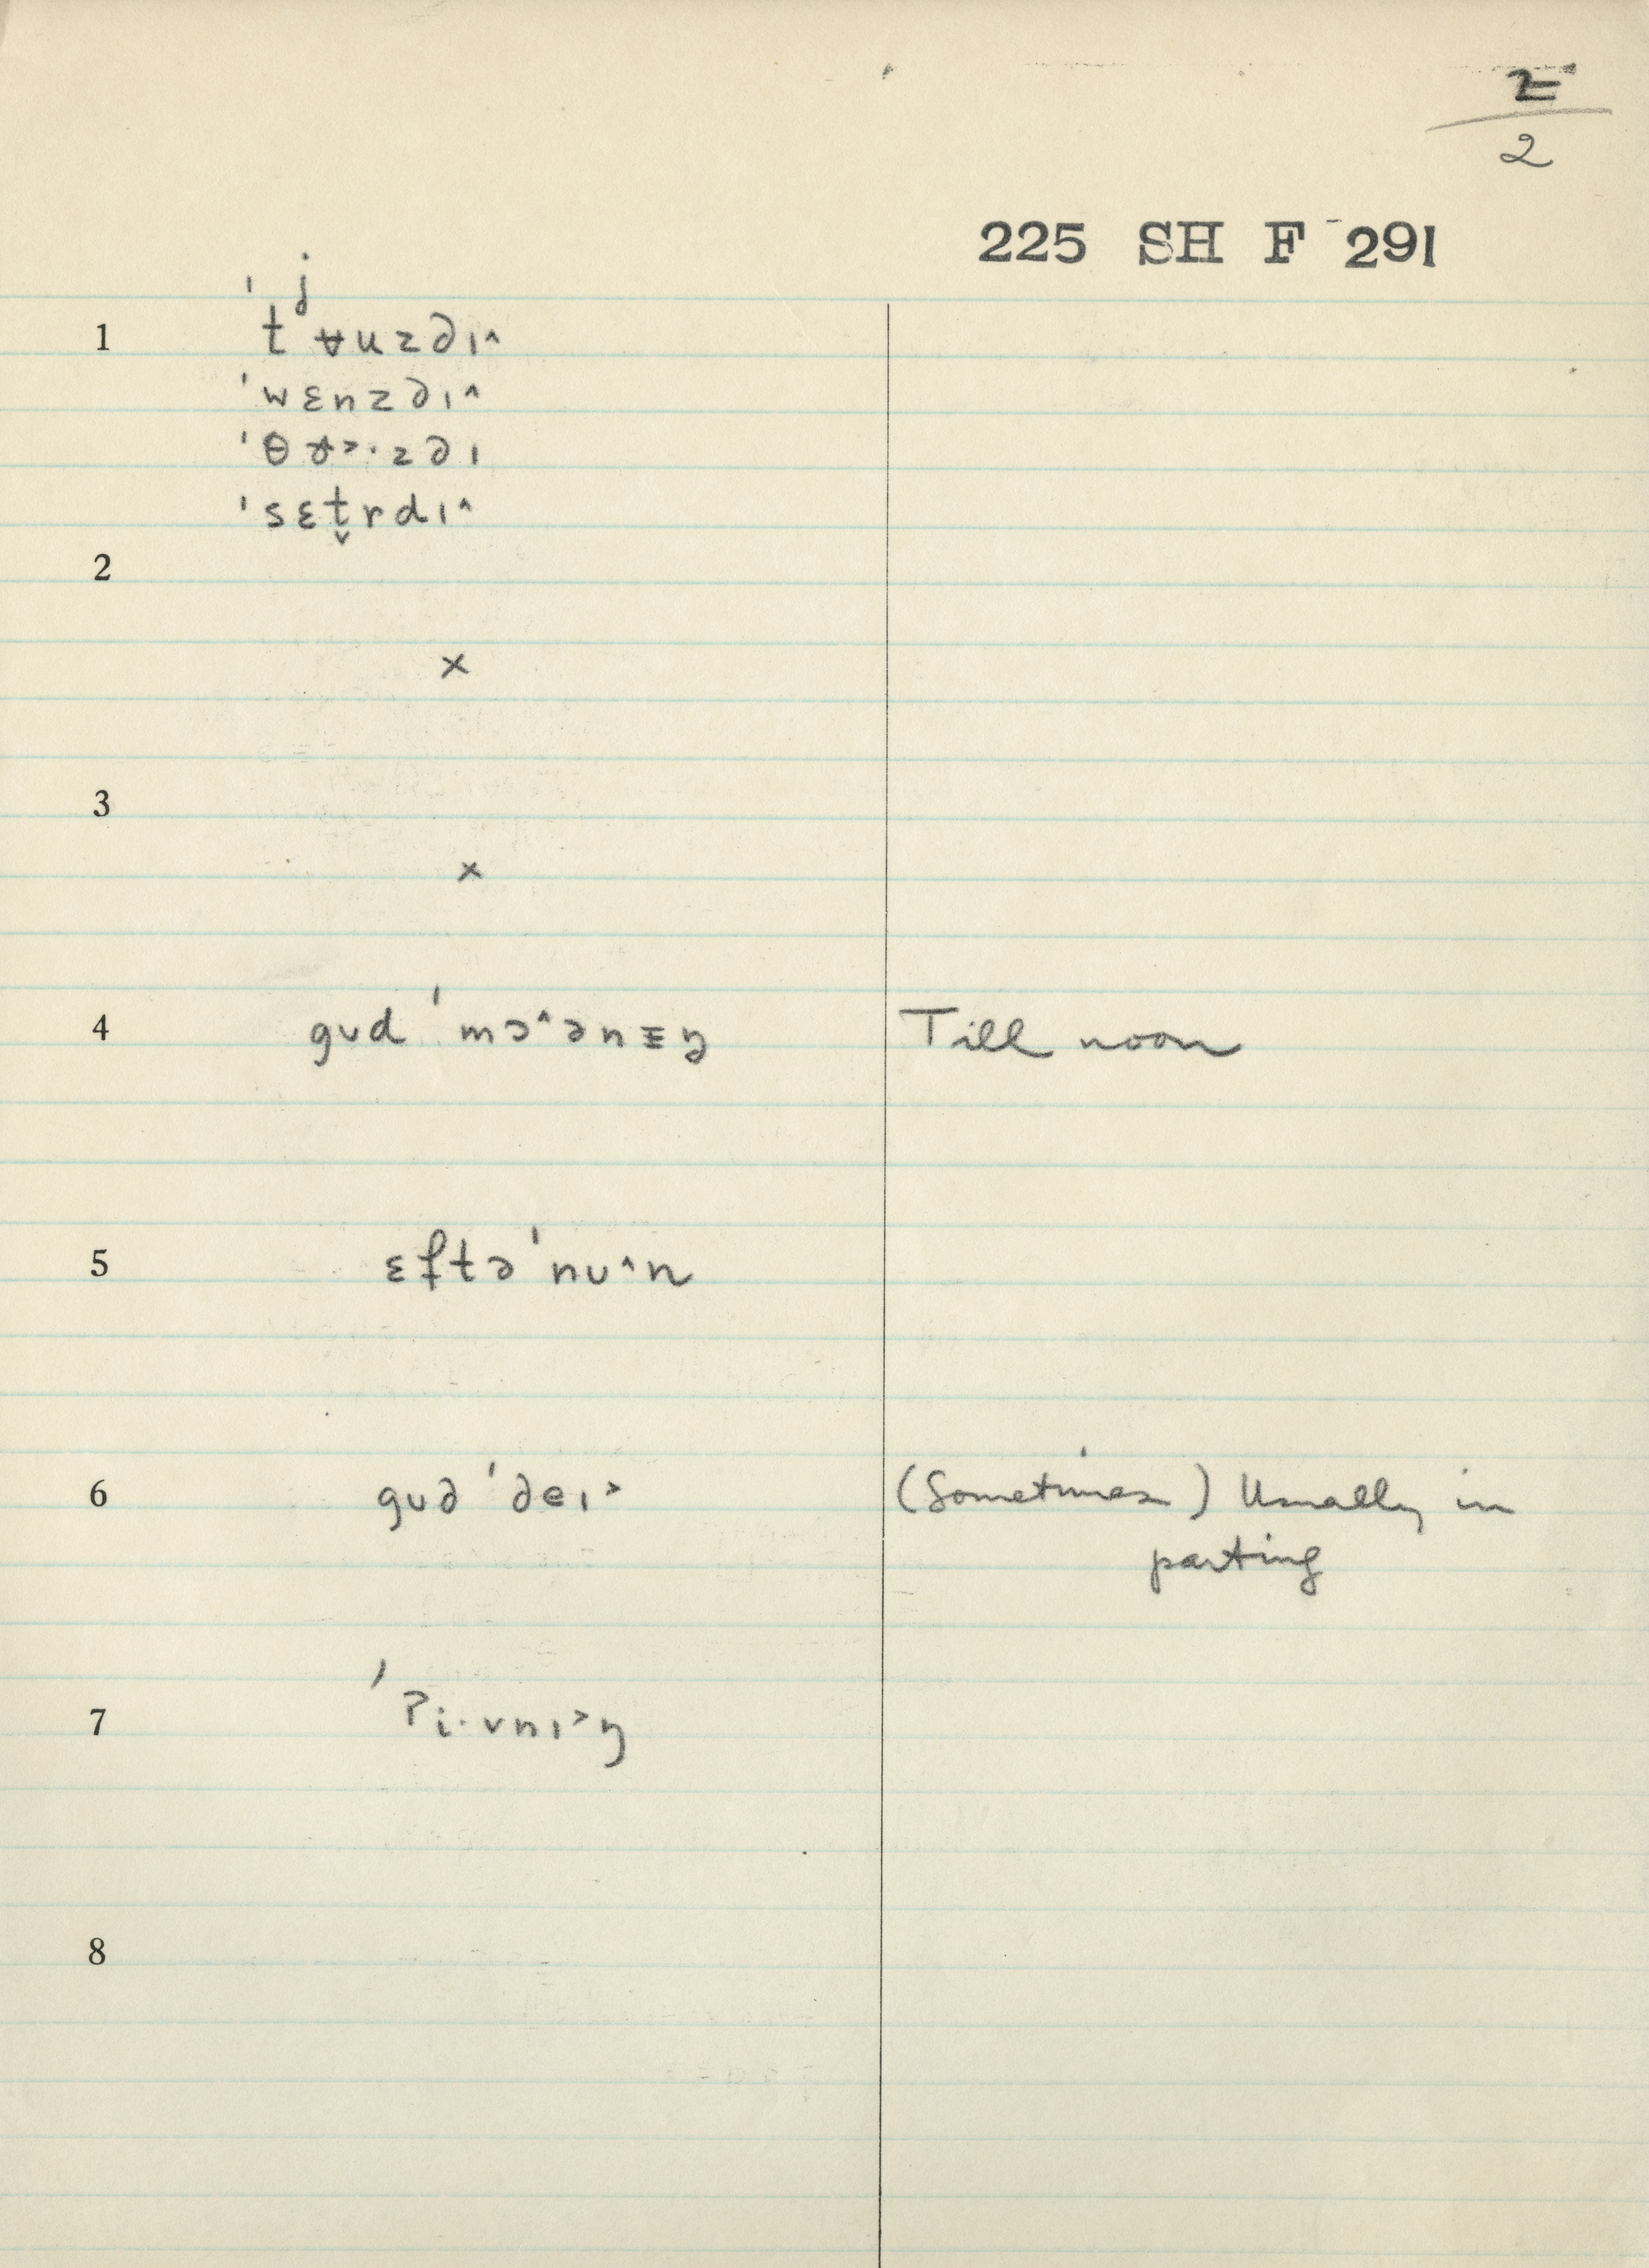 2
2
225 SH F 291
1 ˈtʲʉuzdɪ^
ˈwɛnzdɪ^
ˈsɛt̬rdɪ^
2
×
3
×
4 gʊd ˈmɔ^ənɪŋ Till noon
5 ɛftəˈnu^n
6 gʊd ˈdeɪ> (Sometimes) Usually in
parting
7 ˈʔi·vnɪ>ŋ
8